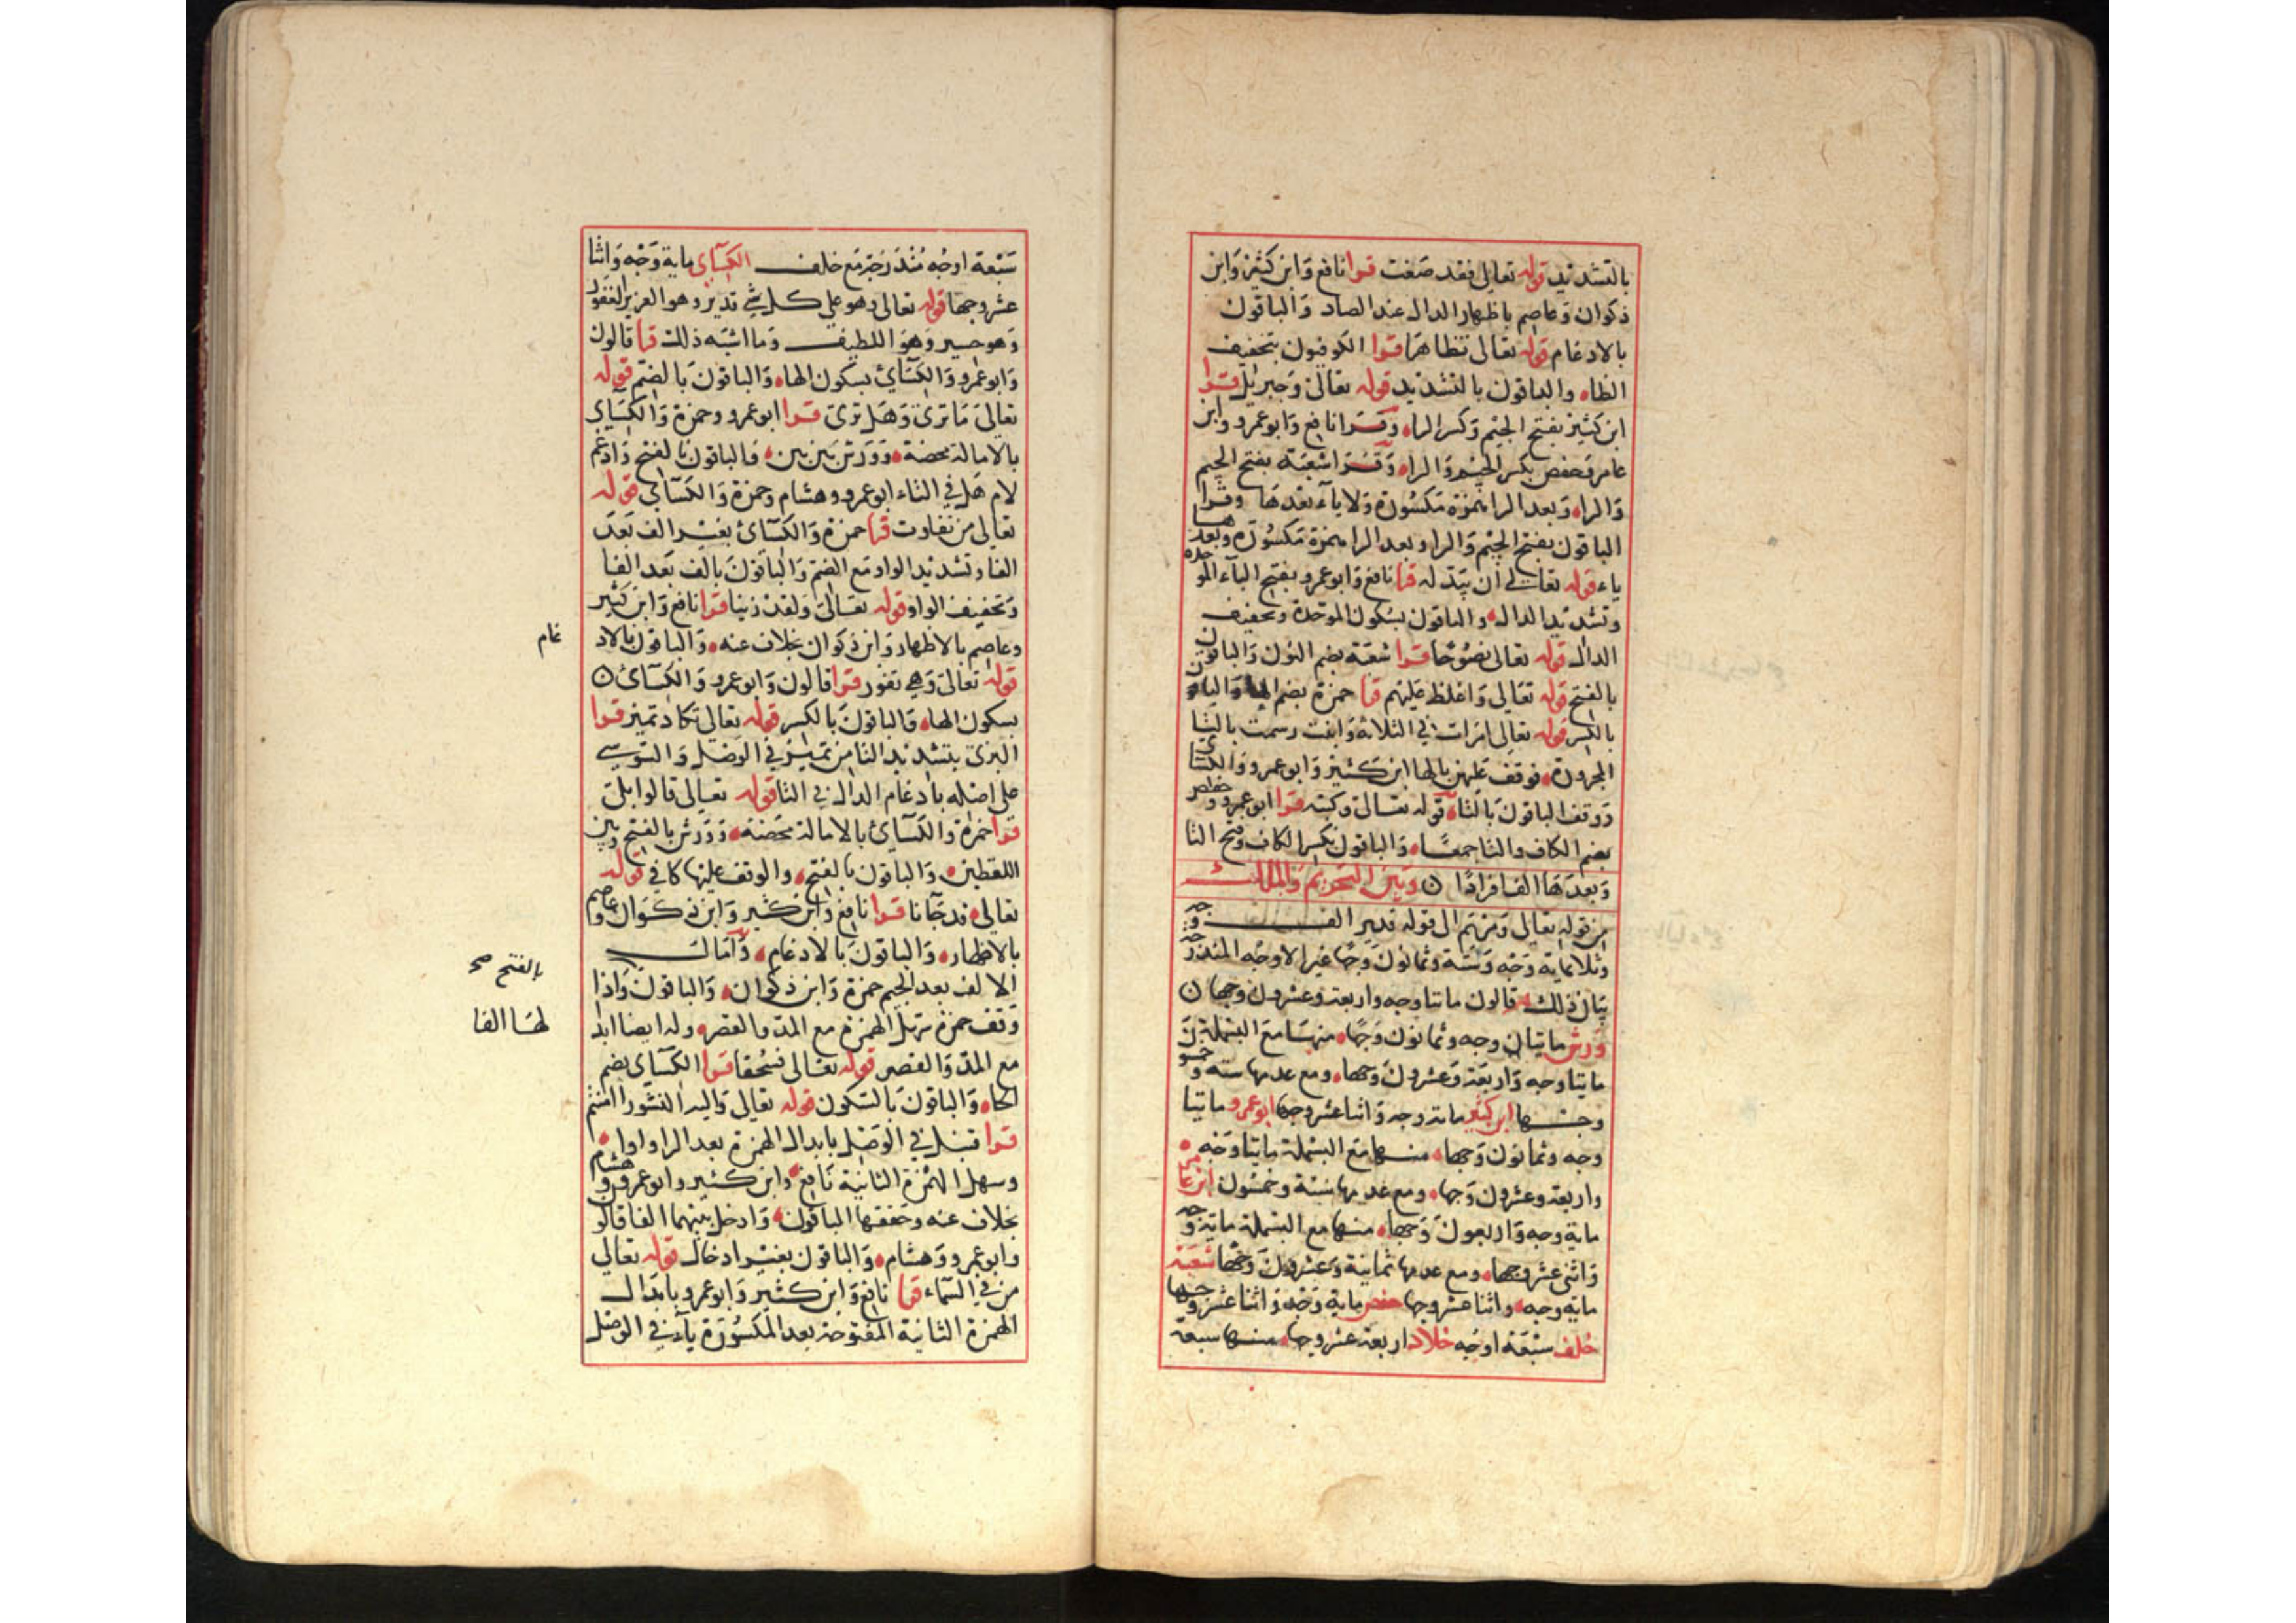 بالتشديد قوله تعالى فقد صغت قرا نافع وابن كثير وابن
ذكوان وعاصم باظهار الدال عند الصاد والباقون
بالادغام قوله تعالى تظاهرا قرا الكوفيون بتخفيف
الظاء والباقون بالتشديد قوله تعالى وجبريل قرا
ابن كثير بفتح الجيم وكسر الراء وقرا نافع وابو عمرو وابن
عامر وحفص بكسر الجيم والراء وقرا شعبة بفتح الجيم
والراء وبعد الرا همزة مكسورة ولا ياء بعدها وقرا
الباقون بفتح الجيم والرا وبعد الرا همزة مكسورة وبعدها
ياء قوله تعالى ان يبدله قرا نافع وابو عمرو بفتح الباء الموحدة
وتشديد الدال والباقون بسكون الموحدة وتخفيف
الدال قوله تعالى نصوحا قرا شعبة بضم النون والباقون
بالفتح قوله تعالى واغلظ عليهم قرا حمزة بضم الها والباقون
بالكسر قوله تعالى امرات في الثلاثة وابنت رسمت بالتا
المجرورة فوقف عليهن بالها ابن كثير وابو عمرو والكسائي
ووقف الباقون بالتاء قوله تعالى وكتبه قرا ابو عمرو وحفص
بضم الكاف والتا جمعا والباقون بكسر الكاف وفتح التا
وبعدها الف افرادا وبين التحريم والملك
من قوله تعالى ومريم الى قوله قدير الف وجه
وثلاثماية وجه وستة وثمانون وجها غير الاوجه المندرجة
بيان ذلك قالون مائتا وجه واربعة وعشرون وجها
ورش مايتان وجه وثمانون وجها منها مع البسملة
مايتا وجه واربعة وعشرون وجها ومع عدمها ستة وخمسون
وجها ابن كثير ماية وجه واثنا عشر وجها ابو عمرو مايتا
وجه وثمانون وجها منها مع البسملة مايتا وجه
واربعة وعشرون وجها ومع عدمها ستة وخمسون ابن عامر
ماية وجه واربعون وجها منها مع البسملة ماية وجه
واثنى عشر وجها ومع عدمها ثمانية وعشرون وجها شعبة
ماية وجه واثنا عشر وجها حفص ماية وجه واثنا عشر وجها
خلف سبعة اوجه خلاد اربعة عشر وجها منها سبعة
سبعة اوجه مندرجة مع خلف الكسائي ماية وجه واثنا
عشر وجها قوله تعالى وهو على كل شي قدير وهو العزيز الغفور
وهو حسير وهو اللطيف وما اشبه ذلك قرا قالون
وابو عمرو والكسائي بسكون الهاء والباقون بالضم قوله
تعالى ما ترى وهل ترى قرا ابو عمرو وحمزة والكسائي
بالامالة محضة وورش بين بين والباقون بالفتح وادغم
لام هل في التاء ابو عمرو وهشام وحمزة والكسائي قوله
تعالى من تفاوت قرا حمزة والكسائي بغير الف بعد
الفا وتشديد الواو مع الضم والباقون بالف بعد الفا
وتخفيف الواو قوله تعالى ولقد زينا قرا نافع وابن كثير
وعاصم بالاظهار وابن ذكوان بخلاف عنه والباقون بالاد
غام
قوله تعالى وهي تفور قرا قالون وابو عمرو والكسائي
بسكون الهاء والباقون بالكسر قوله تعالى تكاد تميز قرا
البزي بتشديد التا من تميز في الوصل والسوسي
على اصله بادغام الدال في التا قوله تعالى قالوا بلى
قرا حمزة والكسائي بالامالة محضة وورش بالفتح وبين
اللفظين والباقون بالفتح والوقف عليها كافي قوله
تعالى قد جانا قرا نافع وابن كثير وابن ذكوان وعاصم
بالاظهار والباقون بالادغام وامال
الالف بعد الجيم حمزة وابن ذكوان والباقون واذا
بالفتح صح
وقف حمزة سهل الهمزة مع المد والقصر وله ايضا ابدا
لها الفا
مع المد والقصر قوله تعالى فسحقا قرا الكسائي بضم
الحاء والباقون بالسكون قوله تعالى واليه النشور اامنتم
قرا قنبل في الوصل بابدال الهمزة بعد الرا واوا
وسهل الهمزة الثانية نافع وابن كثير وابو عمرو وهشام
بخلاف عنه وحققها الباقون وادخل بينهما الفا قالون
وابو عمرو وهشام والباقون بغير ادخال قوله تعالى
من في السماء قرا نافع وابن كثير وابو عمرو بابدال
الهمزة الثانية المفتوحة بعد المكسورة ياء في الوصل